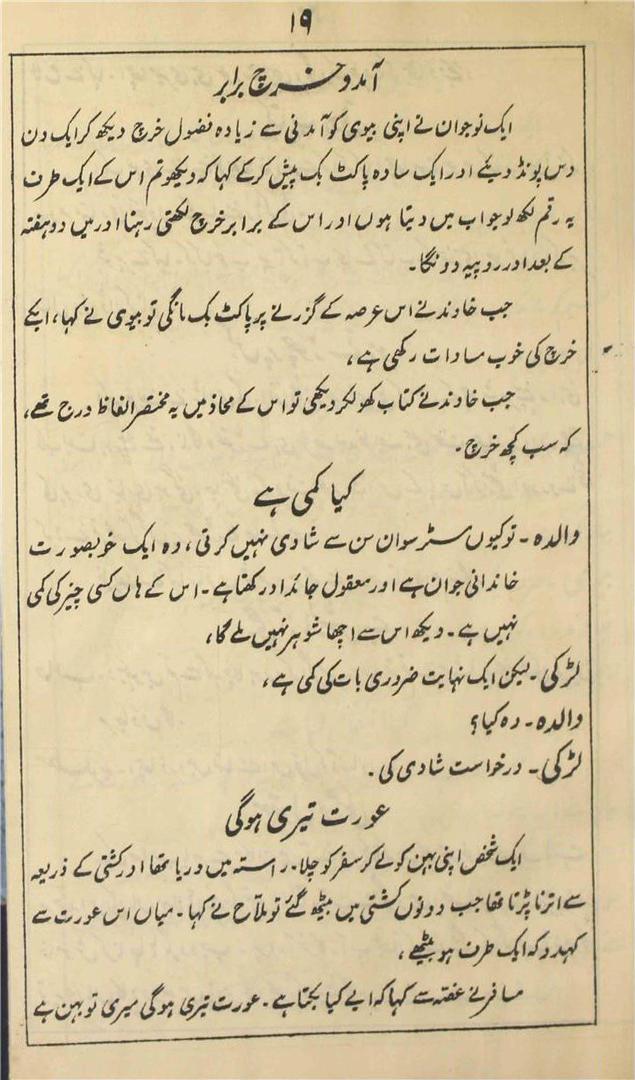 ۱۹
آمد و خرچ برابر
ایک نوجوان نے اپنی بیوی کو آمدنی سے زیادہ فضول خرچ دیکھ کر ایک دن
دس پونڈ دیئے اور ایک سادہ پاکٹ بک پیش کرکے کہا کہ دیکھو تم اس کے ایک طرف
یہ رقم لکھ لو جو اب میں دیتا ہوں اور اس کے برابر خرچ لکھتی رہنا اور میں دو ہفتہ
کے بعد اور روپیہ دونگا۔
جب خاوند نے اس عرصہ کے گزرنے پر پاکٹ بک مانگی تو بیوی نے کہا، ایکے
خرچ کی خوب مساوات رکھی ہے،
جب خاوند نے کتاب کھولکر دیکھی تو اس کے محاذ میں یہ مختصر الفاظ درج تھے،
کہ سب کچھ خرچ۔
کیا کمی ہے
والدہ۔ تو کیوں مسٹر سوان سن سے شادی نہیں کرتی، وہ ایک خوبصورت
خاندانی جوان ہے اور معقول جائداد رکھتا ہے۔ اس کے ہاں کسی چیز کی کمی
نہیں ہے۔ دیکھ اس سے اچھا شوہر نہیں ملے گا،
لڑکی۔ لیکن ایک نہایت ضروری بات کی کمی ہے،
والدہ۔ وہ کیا؟
لڑکی۔ درخواست شادی کی۔
عورت تیری ہوگی
ایک شخص اپنی بہن کو لے کر سفر کو چلا۔ راستہ میں دریا تھا اور کشتی کے ذریعہ
سے اترنا پڑتا تھا جب دونوں کشتی میں بیٹھ گئے تو ملاّح نے کہا۔ میاں اس عورت سے
کہدو کہ ایک طرف ہو بیٹھے،
مسافر نے غصّہ سے کہا کہ ابے کیا بکتا ہے۔ عورت تیری ہوگی میری تو بہن ہے